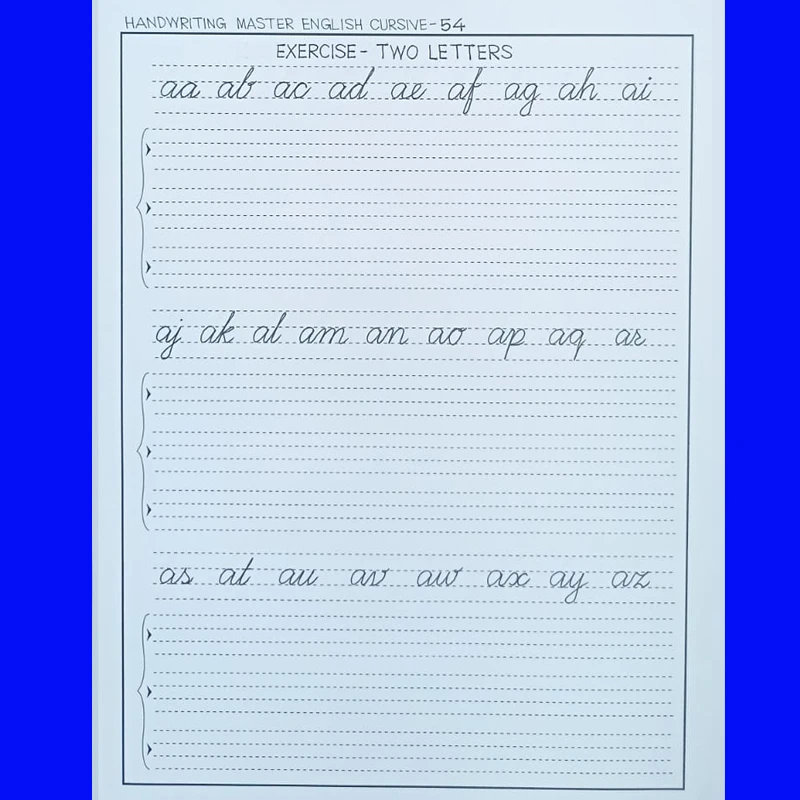 HANDWRITING MASTER ENGLISH CURSIVE-54
EXERCISE- TWO LETTERS
aa ab ac ad ae af ag ah ai
aj ak al am an ao ap aq ar
as at au av aw ax ay az